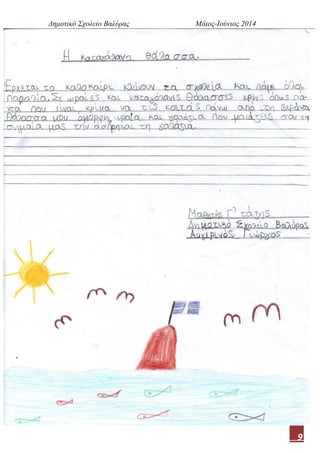 Δημοτικό Σχολείο Βαλύρας Μάιος-Ιούνιος 2014
Η καταγάλανη θάλασσα.
Έρχεται το καλοκαίρι κλείνουν τα σχολεία και πάμε όλοι
παραλία. Σε ωραίες και καταγάλανες θάλασσες
που είναι κρίμα να τις κοιτάς πάνω από τη
θάλασσα μου όμορφη, ωραία και γαλάζια που μοιάζεις σαν τη
σημαία μας την άσπρη και τη γαλάζια.
Μαθητής Γ' τάξης
Δημοτικό Σχολείο Βαλύρας
Αυγερινός Γιώργος
9